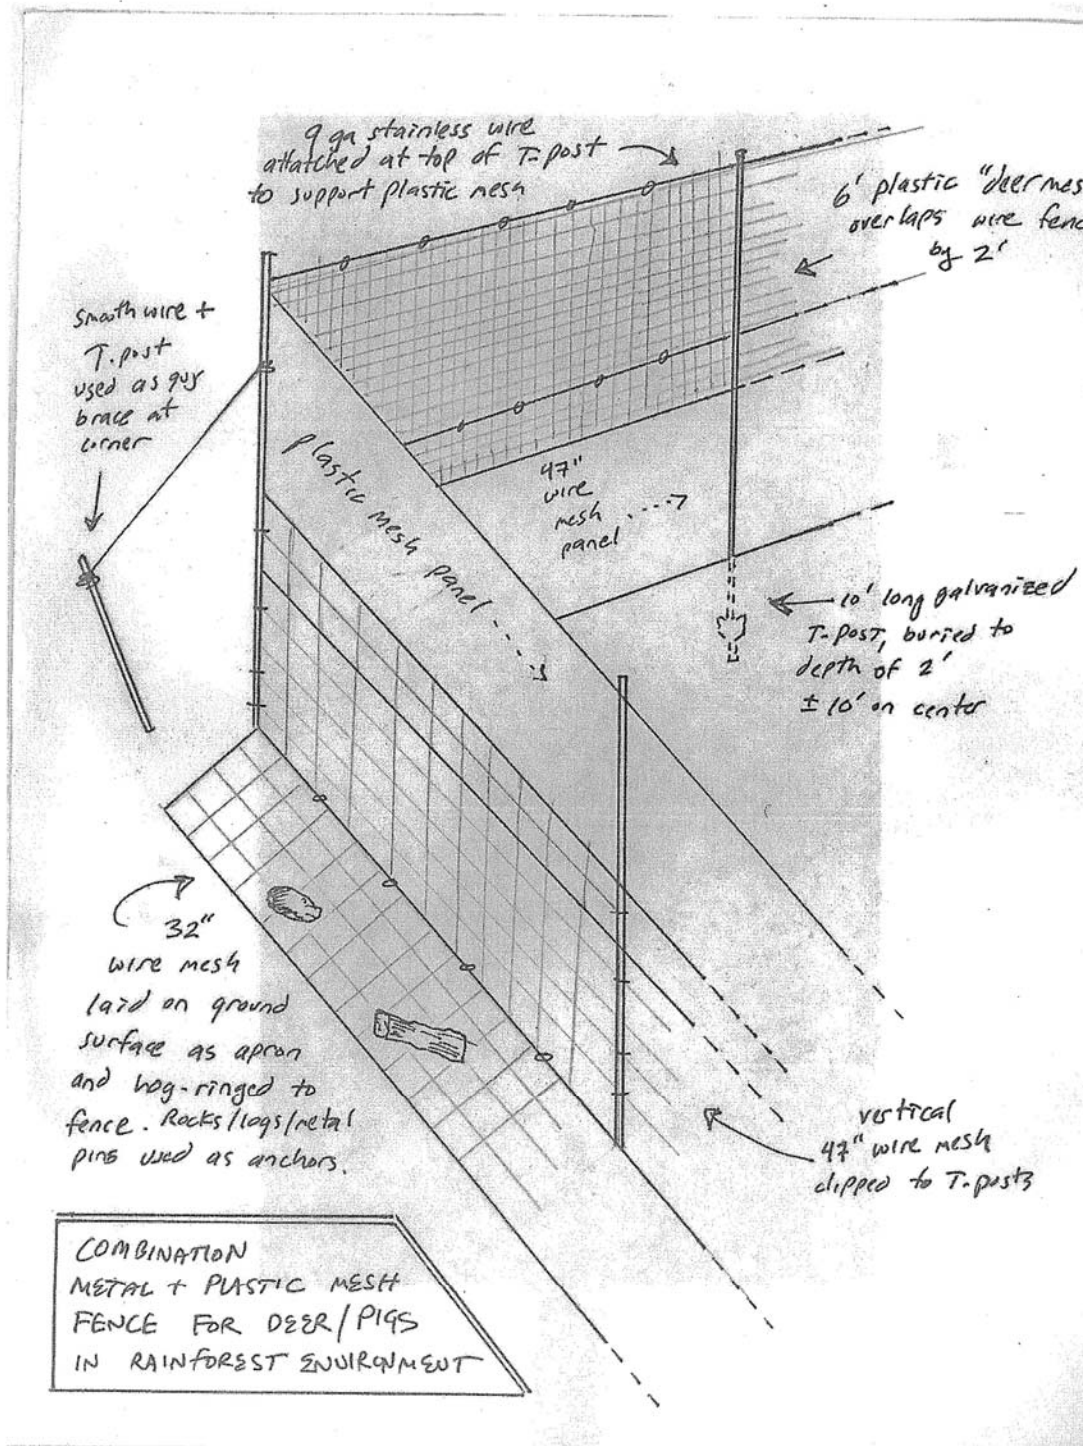 9 ga stainless wire
attatched at top of T-post
to support plastic mesh
6' plastic "deer mes
overlaps wire fenc
by 2'
smooth wire +
T-post
used as guy
brace at
corner
plastic mesh panel
47"
wire
mesh
panel
10' long galvanized
T-Post, buried to
depth of 2'
± 10' on center
32"
wire mesh
laid on ground
surface as apron
and hog-ringed to
fence. Rocks/logs/metal
pins used as anchors.
vertical
47" wire mesh
clipped to T-posts
COMBINATION
METAL + PLASTIC MESH
FENCE FOR DEER/PIGS
IN RAINFOREST ENVIRONMENT